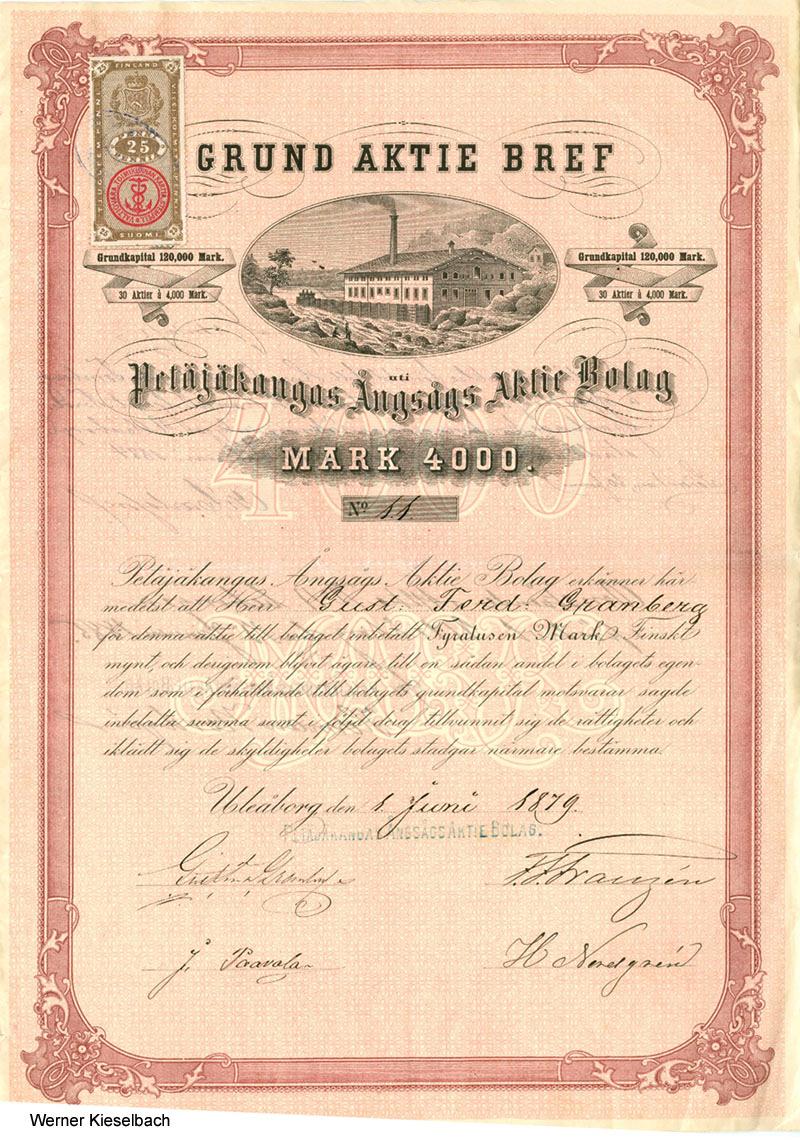 FINLAND
25
SUOMI
GRUND AKTIE BREF
Grundkapital 120,000 Mark.
30 Aktier à 4,000 Mark.
Grundkapital 120,000 Mark.
30 Aktier à 4,000 Mark.
uti
Petäjäkangas Ångsågs Aktie Bolag
4000
MARK 4000.
No 11.
Petäjäkangas Ångsågs Aktie Bolag erkänner här
medelst att Herr Gust. Ferd. Granberg
för denna aktie till bolaget inbetalt Fyratusen Mark Finskt
mynt, och derigenom blifvit ägare till en sådan andel i bolagets egen-
dom som i förhållande till bolagets grundkapital motsvarar sagde
inbetalta summa samt i följd deraf tillvunnit sig de rättigheter och
iklädt sig de skyldigheter bolagets stadgar närmare bestämma.
Uleåborg den 1. Juni 1879.
PETÄJÄKANGAS ÅNGSÅGS AKTIE BOLAG.
F. F. Franzén
J. Paavola
H Nordgrén
Werner Kieselbach